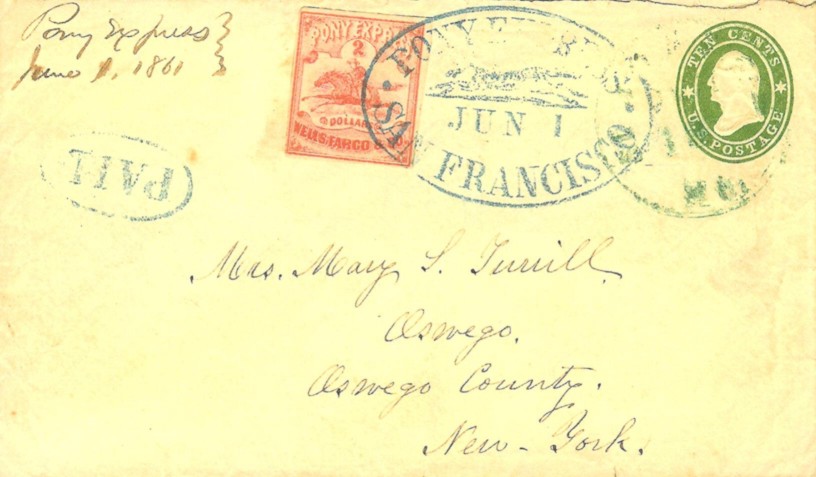 Pony Express
June 1, 1861
PONY EXPRESS
2
2 DOLLARS
WELLS, FARGO & CO.
PONY EXPRESS
JUN 1
SAN FRANCISCO
TEN CENTS
U.S. POSTAGE
MO
PAID
Mrs. Mary S. Turrill
Oswego.
Oswego County.
New-York.